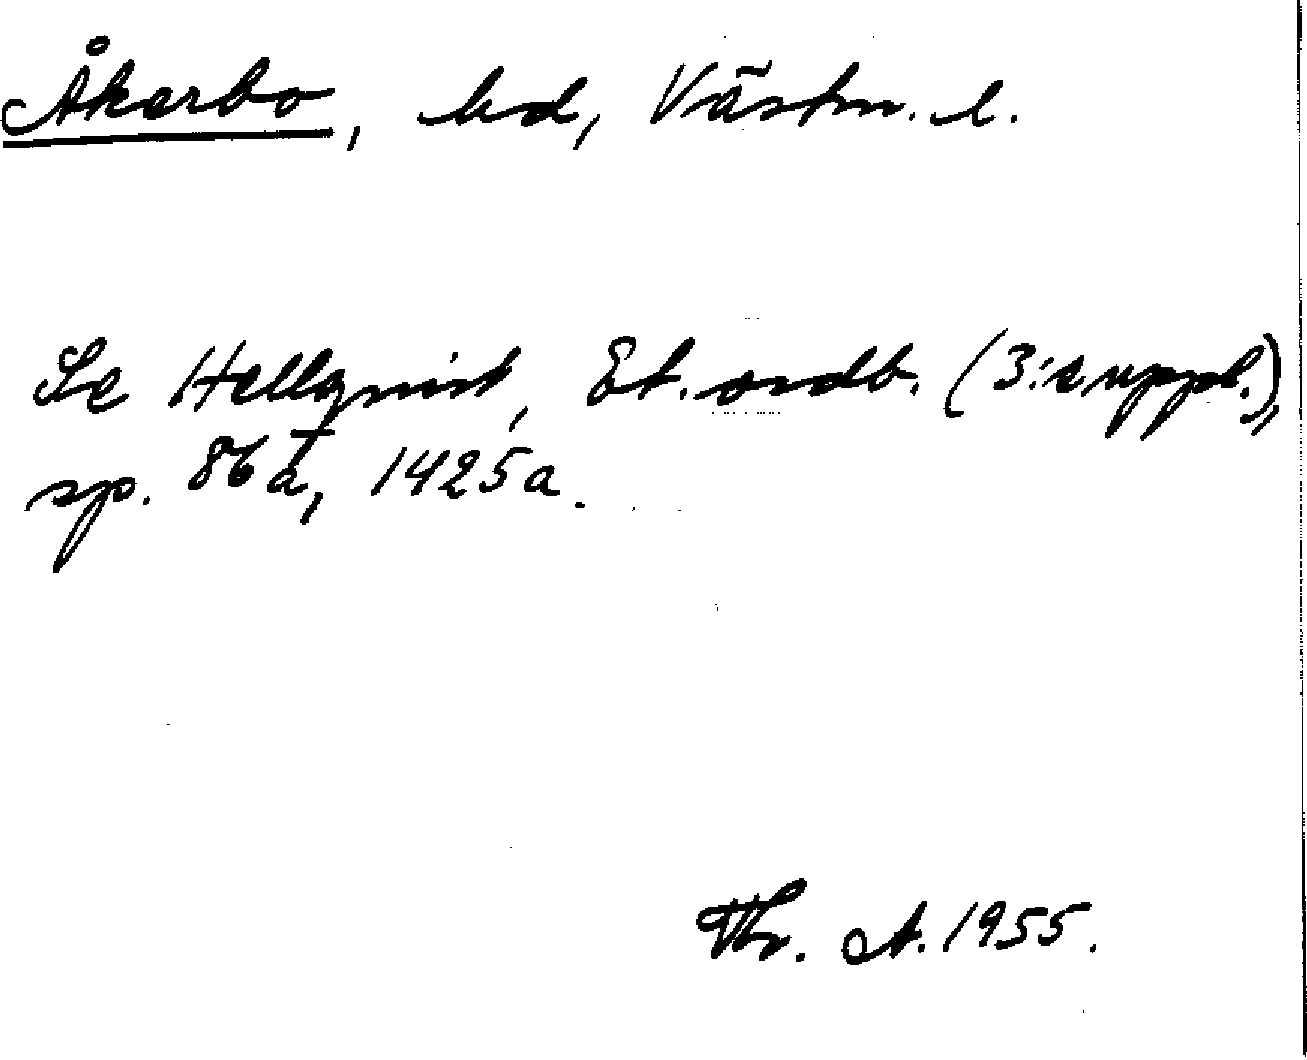 Åkerbo, hd, Västm. l.
Se Hellquist, Et. ordb. (3:e uppl.),
sp. 86 a, 1425 a.
Thr. A. 1955.